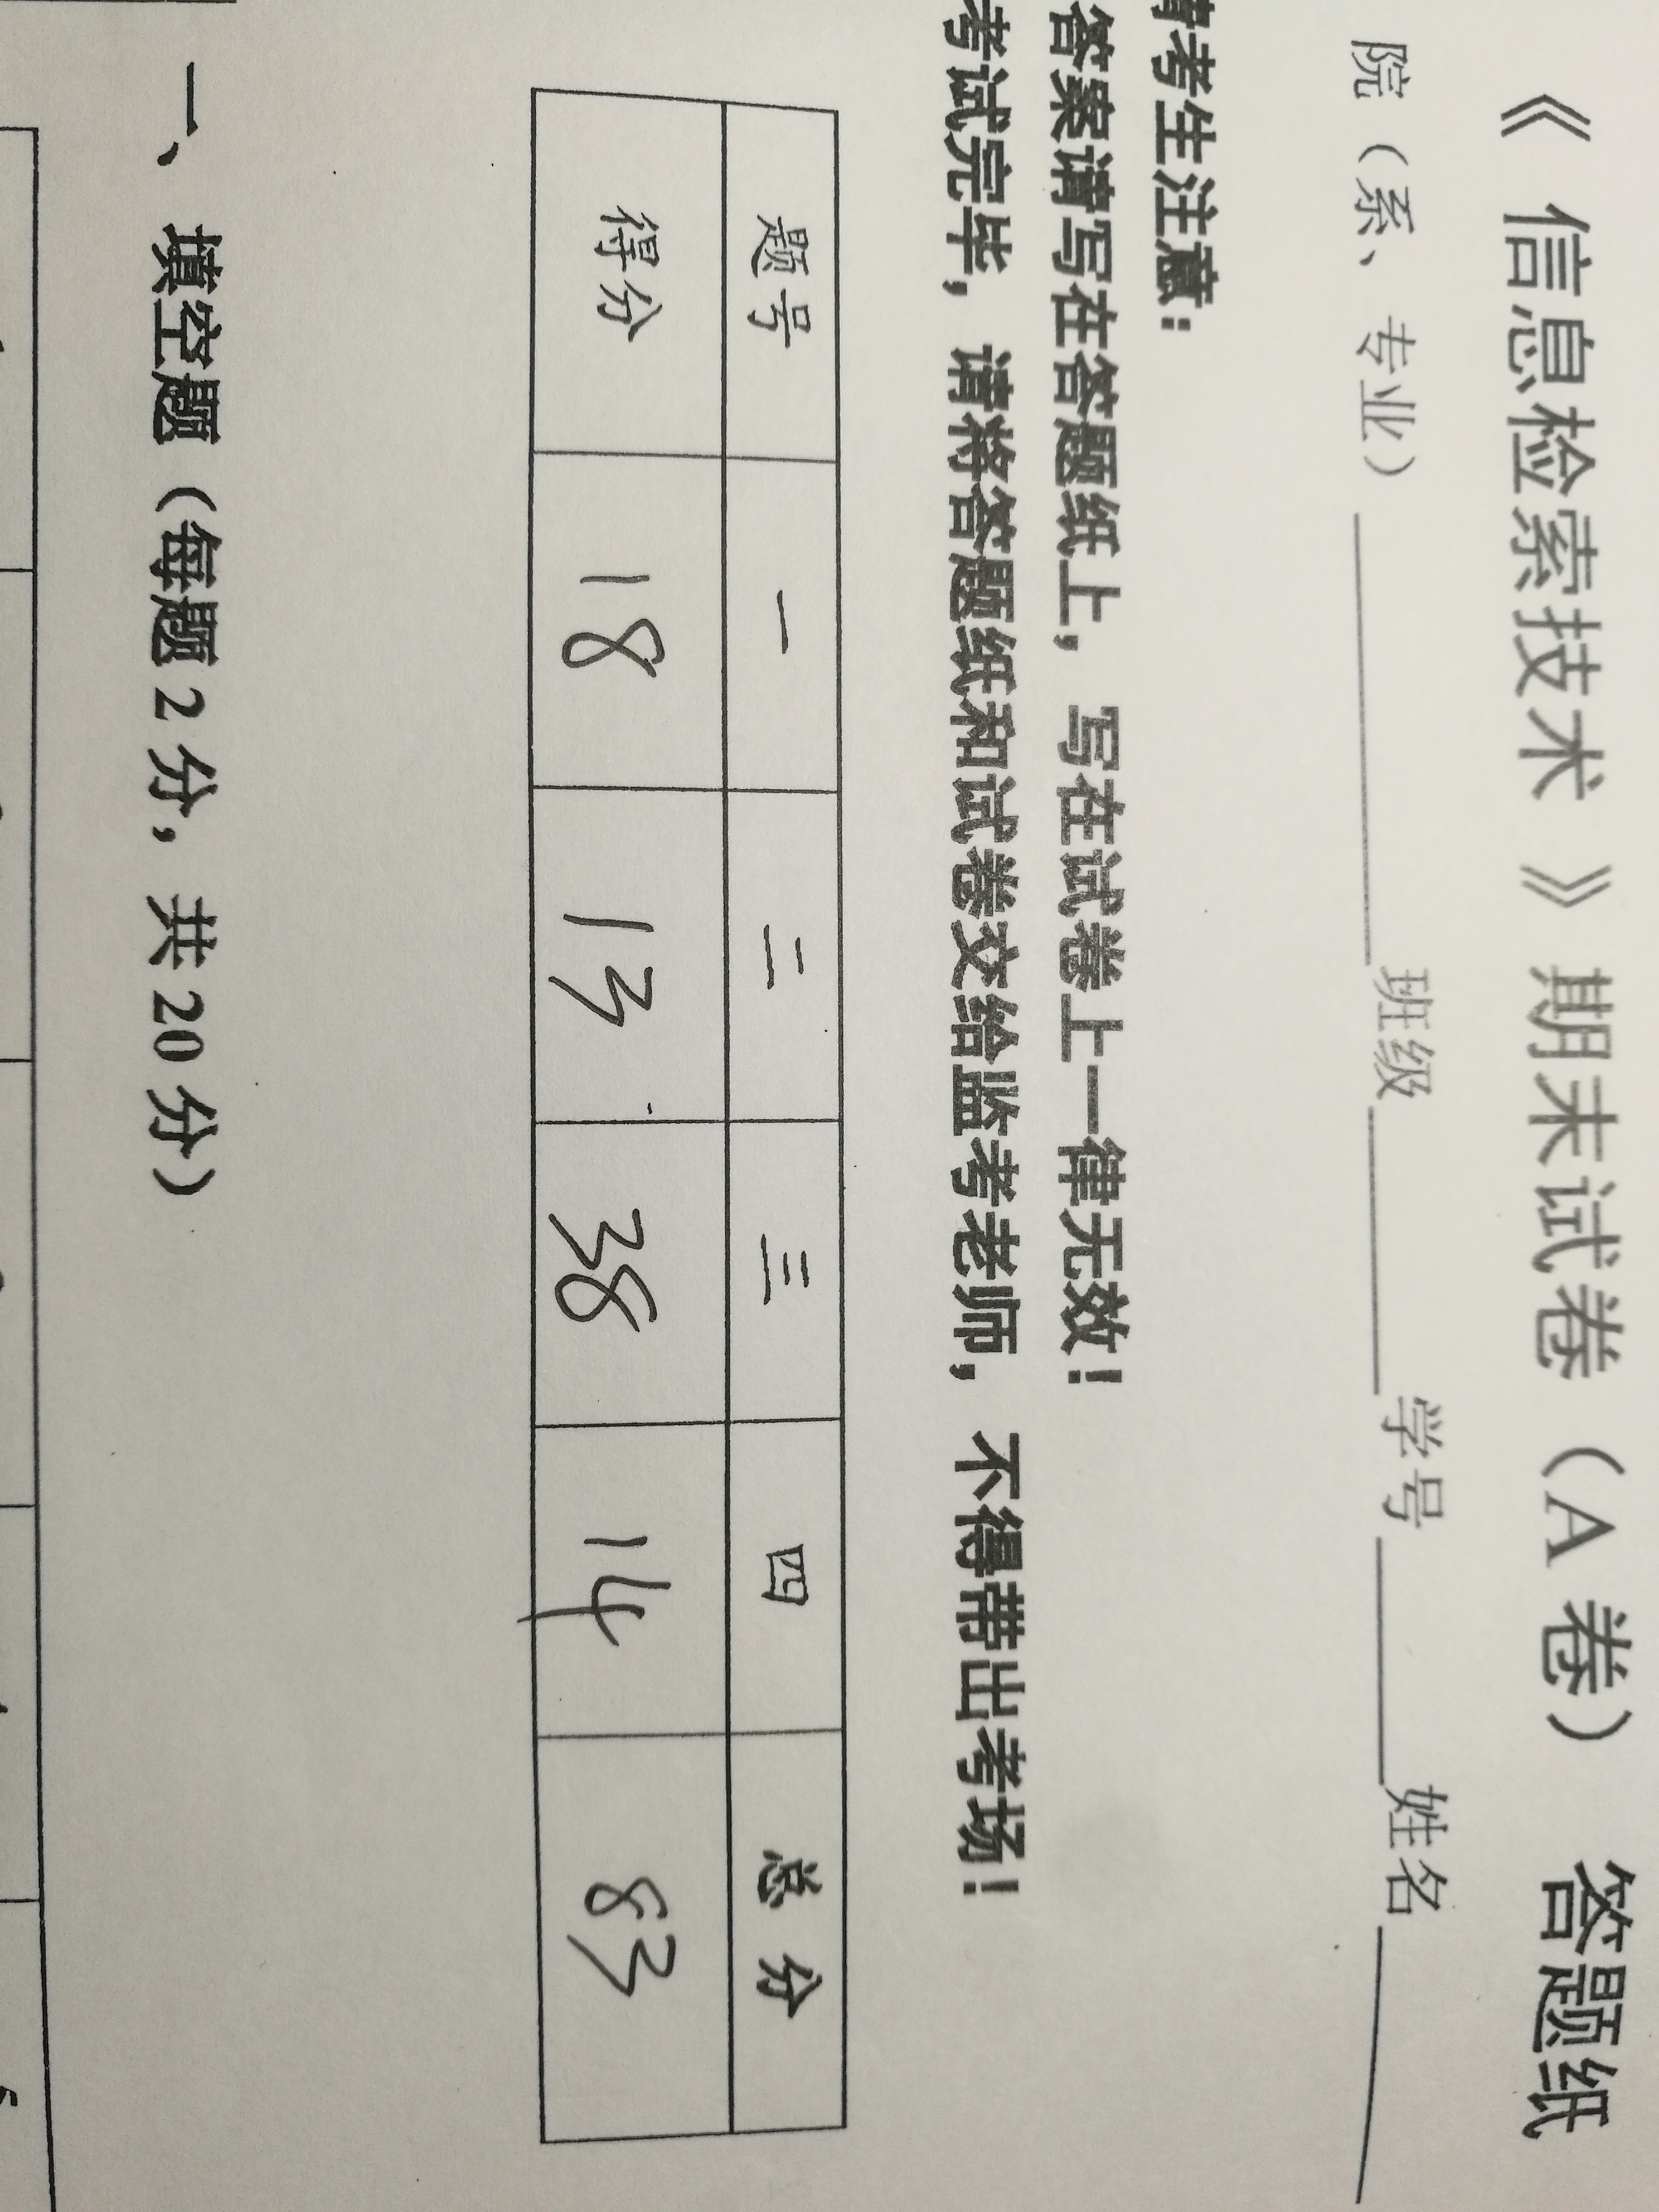 《 信息检索技术 》期末试卷（A 卷） 答题纸
院（系、专业）____________班级________学号_______姓名________
请考生注意：
答案请写在答题纸上，写在试卷上一律无效！
考试完毕，请将答题纸和试卷交给监考老师，不得带出考场！
题号 一 二 三 四 总 分
得分 18 13 38 14 83
一、 填空题（每题 2 分，共 20 分）